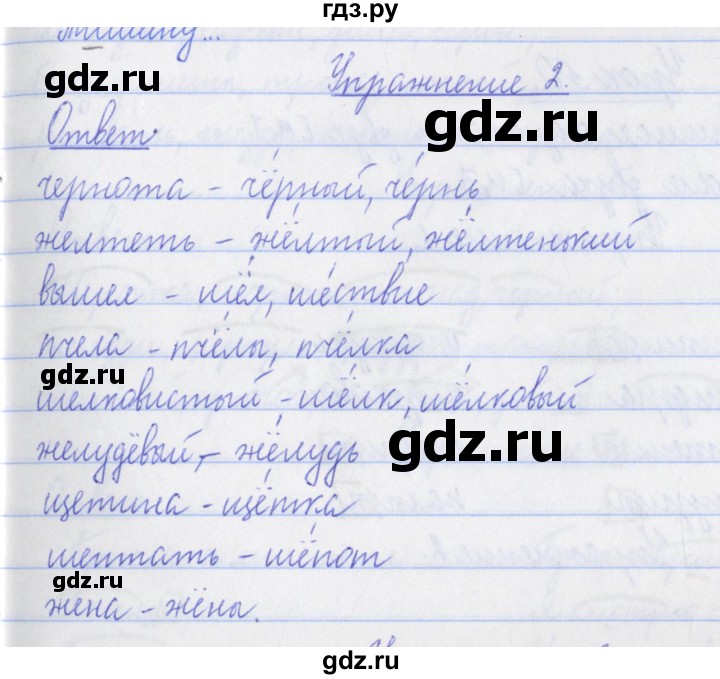 гдз.ру
тишину...
Упражнение 2.
gdz.ru
gdz.ru
Ответ:
чернота – чёрный, че́рнь
желтеть – жёлтый, жёлтенький
gdz.ru
вышел – шёл, ше́ствие
пчела – пчёлы, пчёлка
gdz.ru
шелковистый – шёлк, шёлковый
желудёвый, – жёлудь
gdz.ru
щетина – щётка
шептать – шёпот
gdz.ru
жена – жёны.
gdz.ru